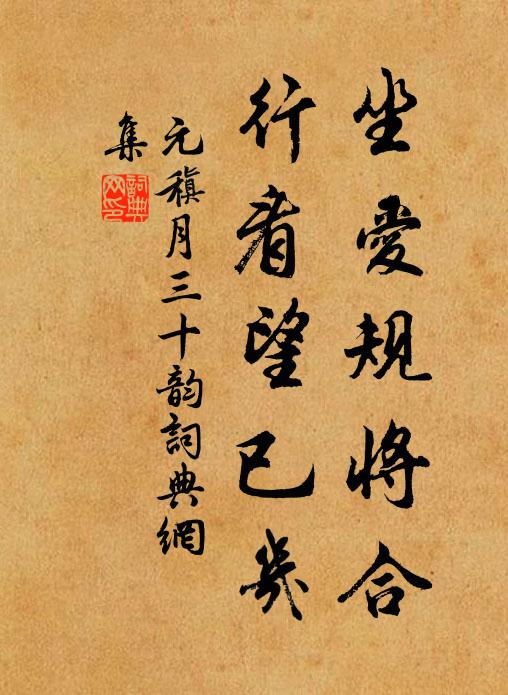 坐愛規將合
行看望已幾
元稹月三十韵詞典網
集
詞典
网印